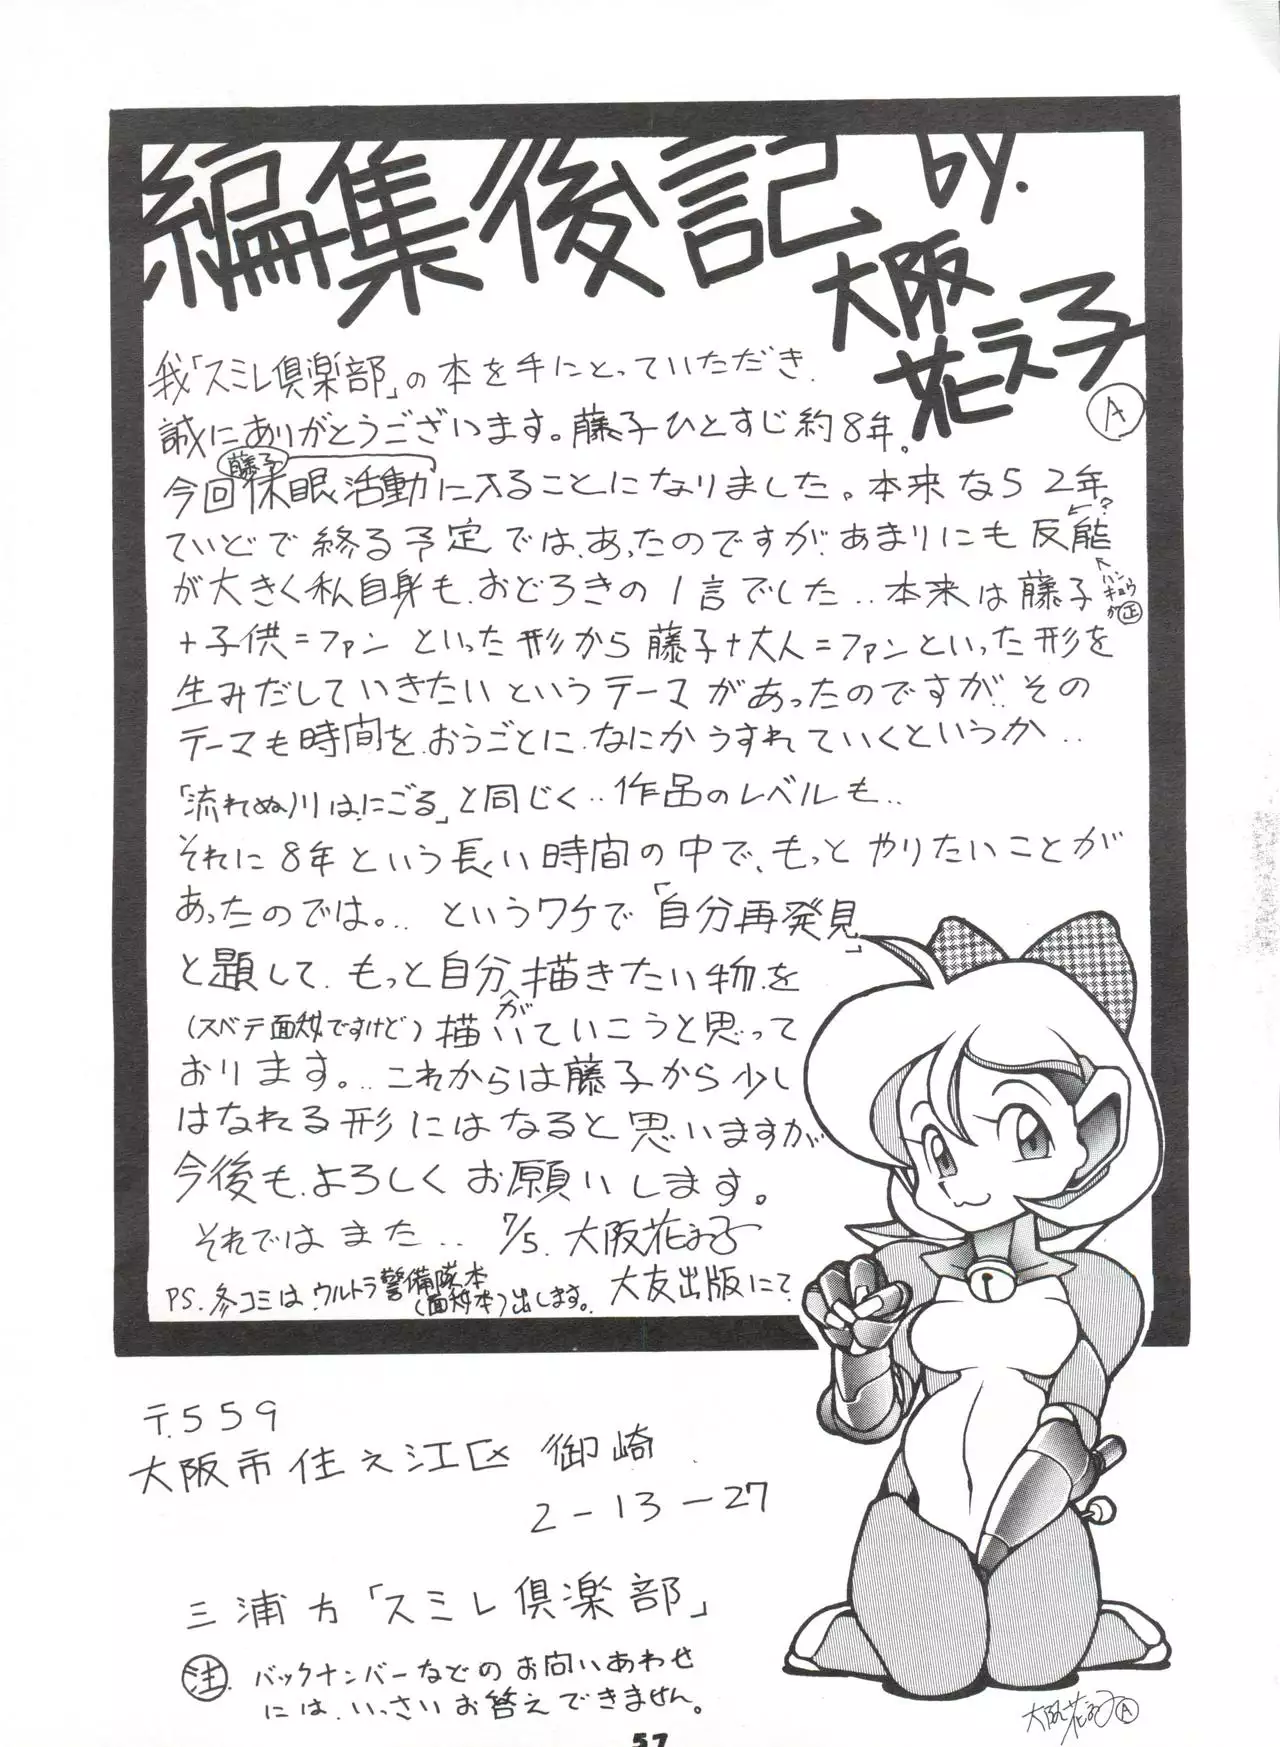 編集後記 by.
大阪
花え子 Ⓐ
我「スミレ倶楽部」の本を手にとっていただき.
誠にありがとうございます。藤子ひとすじ約8年。
藤子
今回休眠活動に入ることになりました。本来なら2年
ていどで終る予定では、あったのですが、あまりにも反能
←?
ハン
キョウ
が㊣
が大きく私自身も、おどろきの1言でした‥本来は藤子
+子供=ファン といった形から藤子+大人=ファンといった形を
生みだしていきたいというテーマがあったのですが‥その
テーマも時間を、おうごとに、なにかうすれていくというか‥
「流れぬ川は、にごる」と同じく‥作品のレベルも‥
それに8年という長い時間の中で、もっとやりたいことが
あったのでは。‥ というワケで「自分再発見」
と題して、もっと自分が描きたい物を
(スベテ面妖ですけど)描いていこうと思って
おります。‥これからは藤子から少し
はなれる形にはなると思いますが
今後も、よろしくお願いします。
それではまた‥ 7/5. 大阪花え子
大友出版にて
PS. 冬コミは、ウルトラ警備隊本
(面妖本)出します。
〒559
大阪市住之江区 御崎
2-13-27
三浦方「スミレ倶楽部」
注 バックナンバーなどのお問いあわせ
には、いっさいお答えできません。
大阪花え子Ⓐ
57